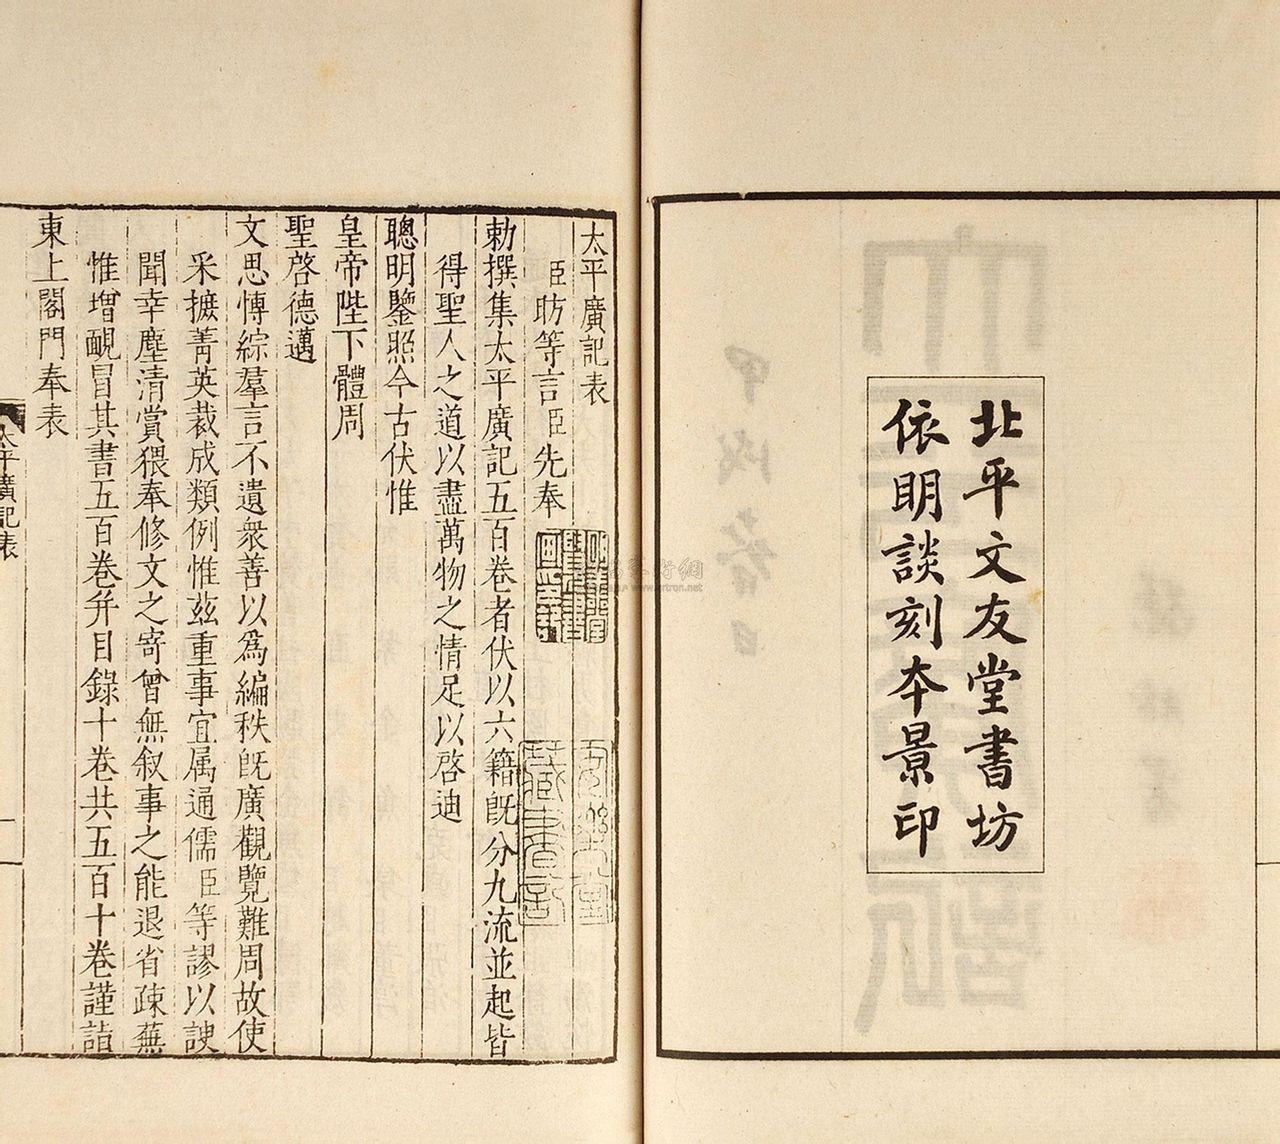 北平文友堂書坊
依明談刻本景印
太平廣記表
臣昉等言臣先奉
勅撰集太平廣記五百卷者伏以六籍旣分九流並起皆
得聖人之道以盡萬物之情足以啓迪
聰明鑒照今古伏惟
皇帝陛下體周
聖啓德邁
文思愽綜羣言不遺衆善以爲編秩旣廣觀覽難周故使
采摭菁英裁成類例惟茲重事宜属通儒臣等謬以諛
聞幸塵清賞猥奉修文之寄曾無叙事之能退省疎蕪
惟增靦冒其書五百卷并目錄十卷共五百十卷謹詣
東上閤門奉表
太平廣記表